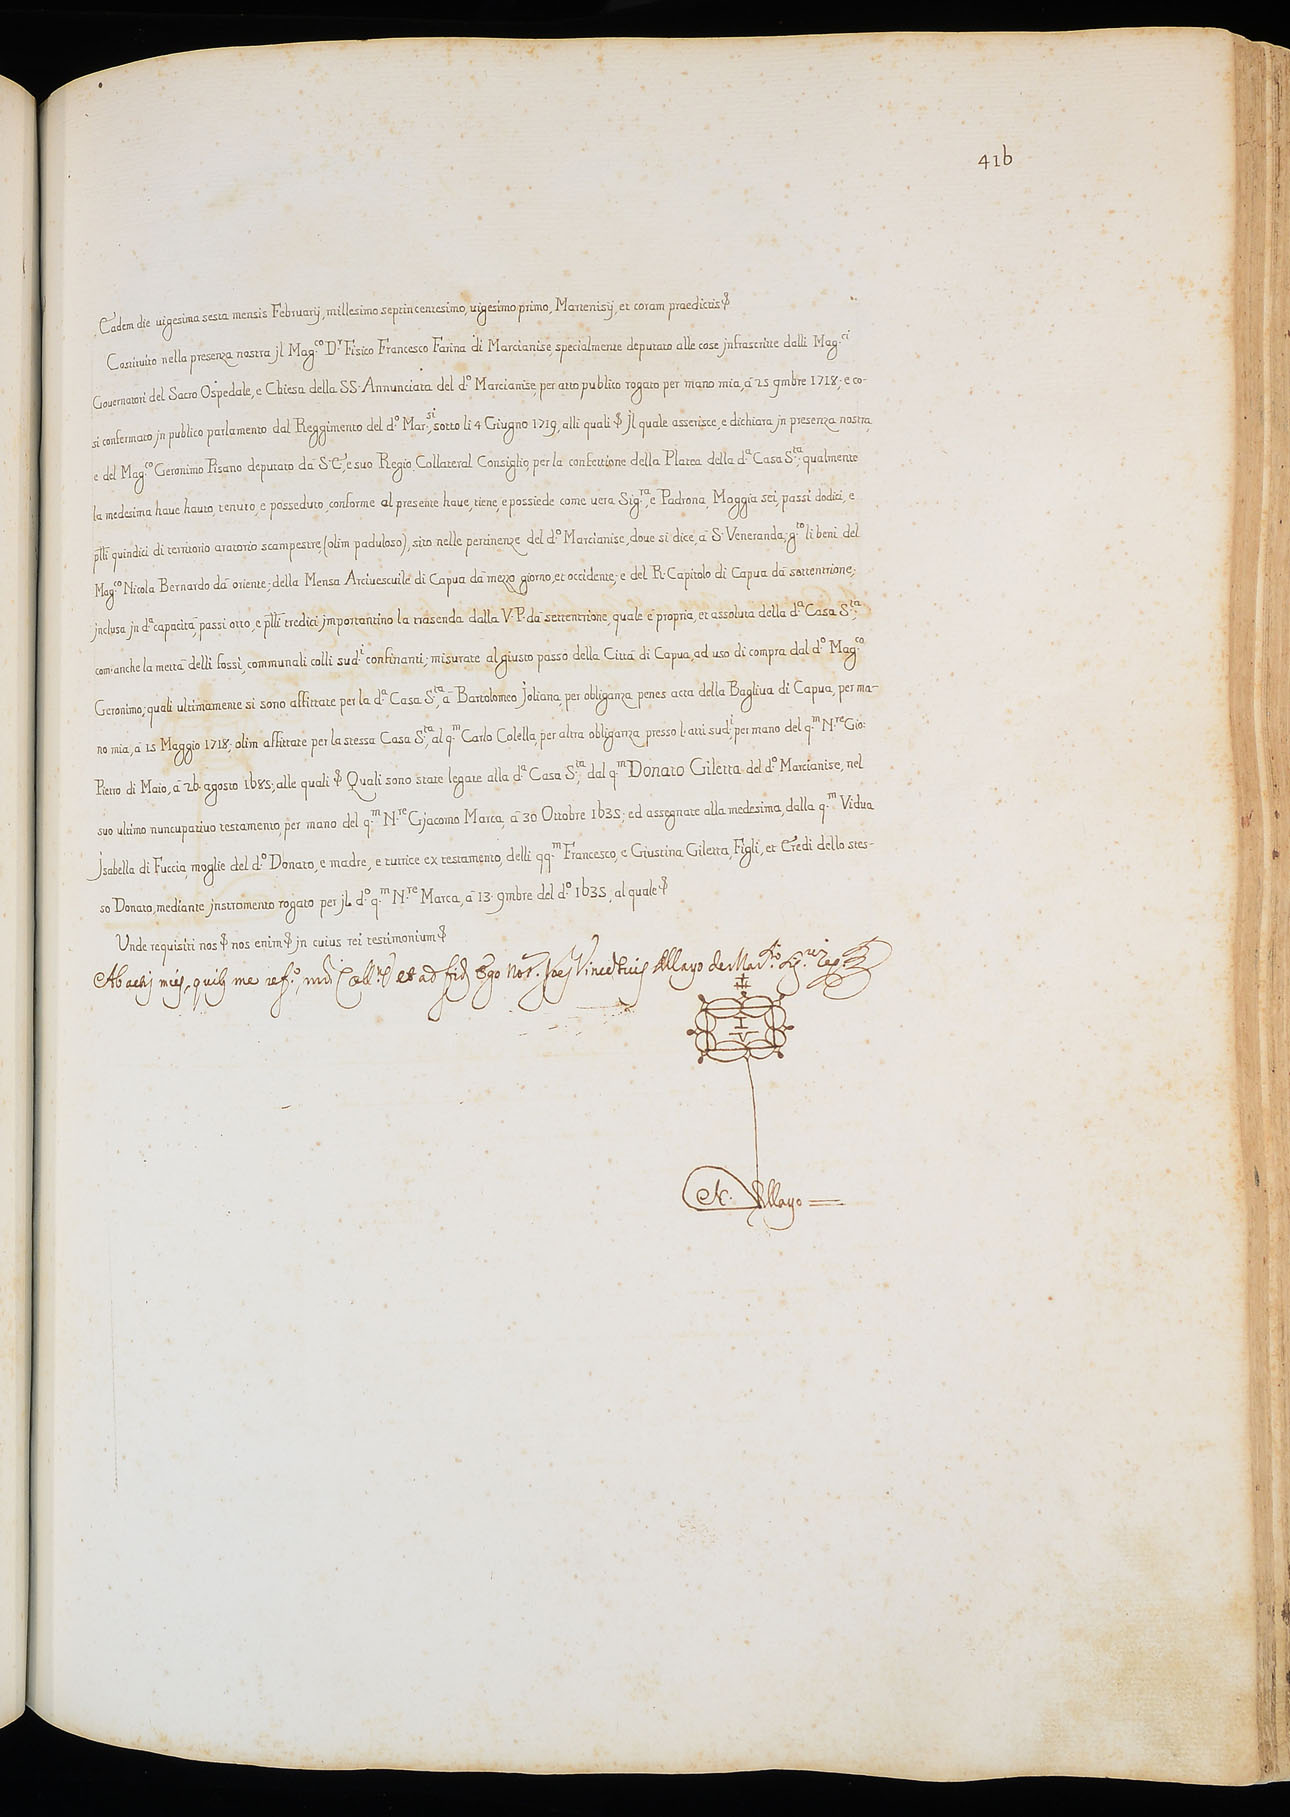 41b
Eadem die uigesima sexta mensis Februarij, millesimo septincentesimo, uigesimo primo, Martenisij, et coram praedictis
Costituito nella presenza nostra jl Mag.co D.r Fisico Francesco Farina di Marcianise, specialmente deputato alle cose jnfrascritte dalli Mag.ci
Gouernatori del Sacro Ospedale, e Chiesa della SS. Annunciata del d.o Marcianise, per atto publico rogato per mano mia, à 25 9mbre 1718; e co-
si confermato jn publico parlamento dal Reggimento del d.o Mar.si, sotto li 4 Giugno 1719, alli quali & Jl quale asserisce, e dichiara jn presenza nostra,
e del Mag.co Geronimo Pisano deputato dà S. E., e suo Regio Collateral Consiglio, per la confettione della Platea della d.a Casa S.ta, qualmente
la medesima haue hauto, tenuto, e posseduto, conforme al presente haue, tiene, e possiede come uera Sig.ra, e Padrona, Moggia sei, passi dodici, e
p.lli quindici di territorio aratorio scampestre, (olim paduloso), sito nelle pertinenze del d.o Marcianise, doue si dice, à S. Veneranda, g.to li beni del
Mag.co Nicola Bernardo dà oriente; della Mensa Arciuescuile di Capua dà mezzo giorno, et occidente; e del R. Capitolo di Capua dà settentrione;
jnclusa jn d.a capacità, passi otto, e p.lli tredici jmportantino la trasenda dalla V. P. dà settentrione, quale è propria, et assoluta della d.a Casa S.ta,
com'anche la mettà delli fossi, communali colli sud.i confinanti; misurate al giusto passo della Città di Capua, ad uso di compra dal d.o Mag.co
Geronimo; quali ultimamente si sono affittate per la d.a Casa S.ta, à Bartolomeo Joliana, per obliganza penes acta della Bagliua di Capua, per ma-
no mia, à 15 Maggio 1718; olim affittate per la stessa Casa S.ta, al q.m Carlo Colella, per altra obliganza presso l'atti sud.i, per mano del q.m N.re Gio:
Pietro di Maio, à 26 agosto 1685; alle quali & Quali sono state legate alla d.a Casa S.ta, dal q.m Donato Giletta del d.o Marcianise, nel
suo ultimo nuncupatiuo testamento, per mano del q.m N.re Gjacomo Marca, à 30 Ottobre 1635; ed assegnate alla medesima, dalla q.m Vidua
Jsabella di Fuccia, moglie del d.o Donato, e madre, e tutrice ex testamento, delli qq.m Francesco, e Giustina Giletta, Figli, et Eredi dello stes-
so Donato, mediante jnstromento rogato per jl d.o q.m N.re Marca, à 13 9mbre del d.o 1635, al quale &
Unde requisiti nos & nos enim & jn cuius rei testimonium &
Ab actis meis, quib9 me ref.o, et ad fid. Ego Not. Vincentius Allayo de Mar.o
I V
N. Allayo